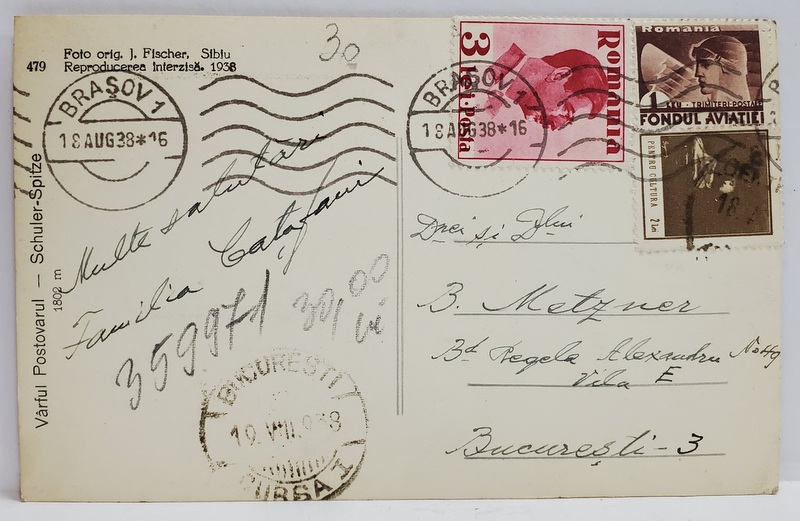 30
479 Foto orig. J. Fischer, Sibiu
Reproducerea interzisă. 1938
Vârful Postovarul — Schuler-Spitze
1802 m
BRAȘOV 1
18 AUG 38 * 16
Multe salutări
Familia Cațafani
359971
30,00
lei
BUCUREȘTI
19. VIII. 938
CURSA I
BRAȘOV 1
18 AUG 38 * 16
Romania
3 lei·Posta
Romania
1 LEU · TRIMITERI-POSTALE
FONDUL AVIAȚIEI
PENTRU CULTURA 2 Lei
18
Dnei și Dlui
B. Metzner
Bd. Regele Alexandru No 49
Vila E
București-3